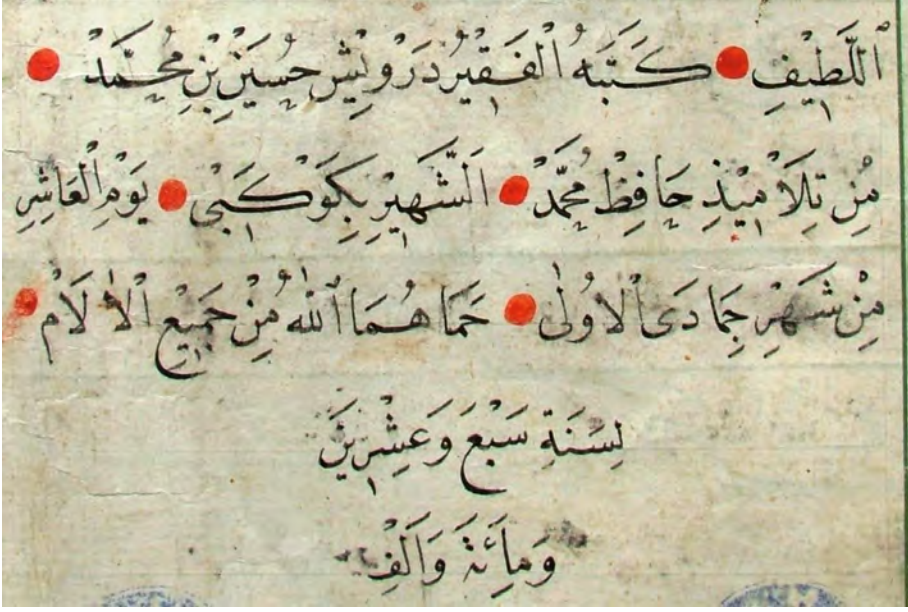 ٱللَّطِيفِ كَتَبَهُ الْفَقِيرُ دَرْوِيشْ حُسَيْنْ بِنِ مُحَمَّدْ
مِنْ تِلَامِيذِ حَافِظْ مُحَمَّدْ اَلشَّهِيرِ بِكَوْكَبِى يَوْمِ الْعَاشِرِ
مِنْ شَهْرِ جِمَادَى الْاُولٰى حَمَاهُمَا ٱللّٰهُ مِنْ جَمِيعِ الْاٰلَامْ
لِسَنَةِ سَبْعَ وَعِشْرِينَ
وَمِأَئَةَ وَاَلْفِ